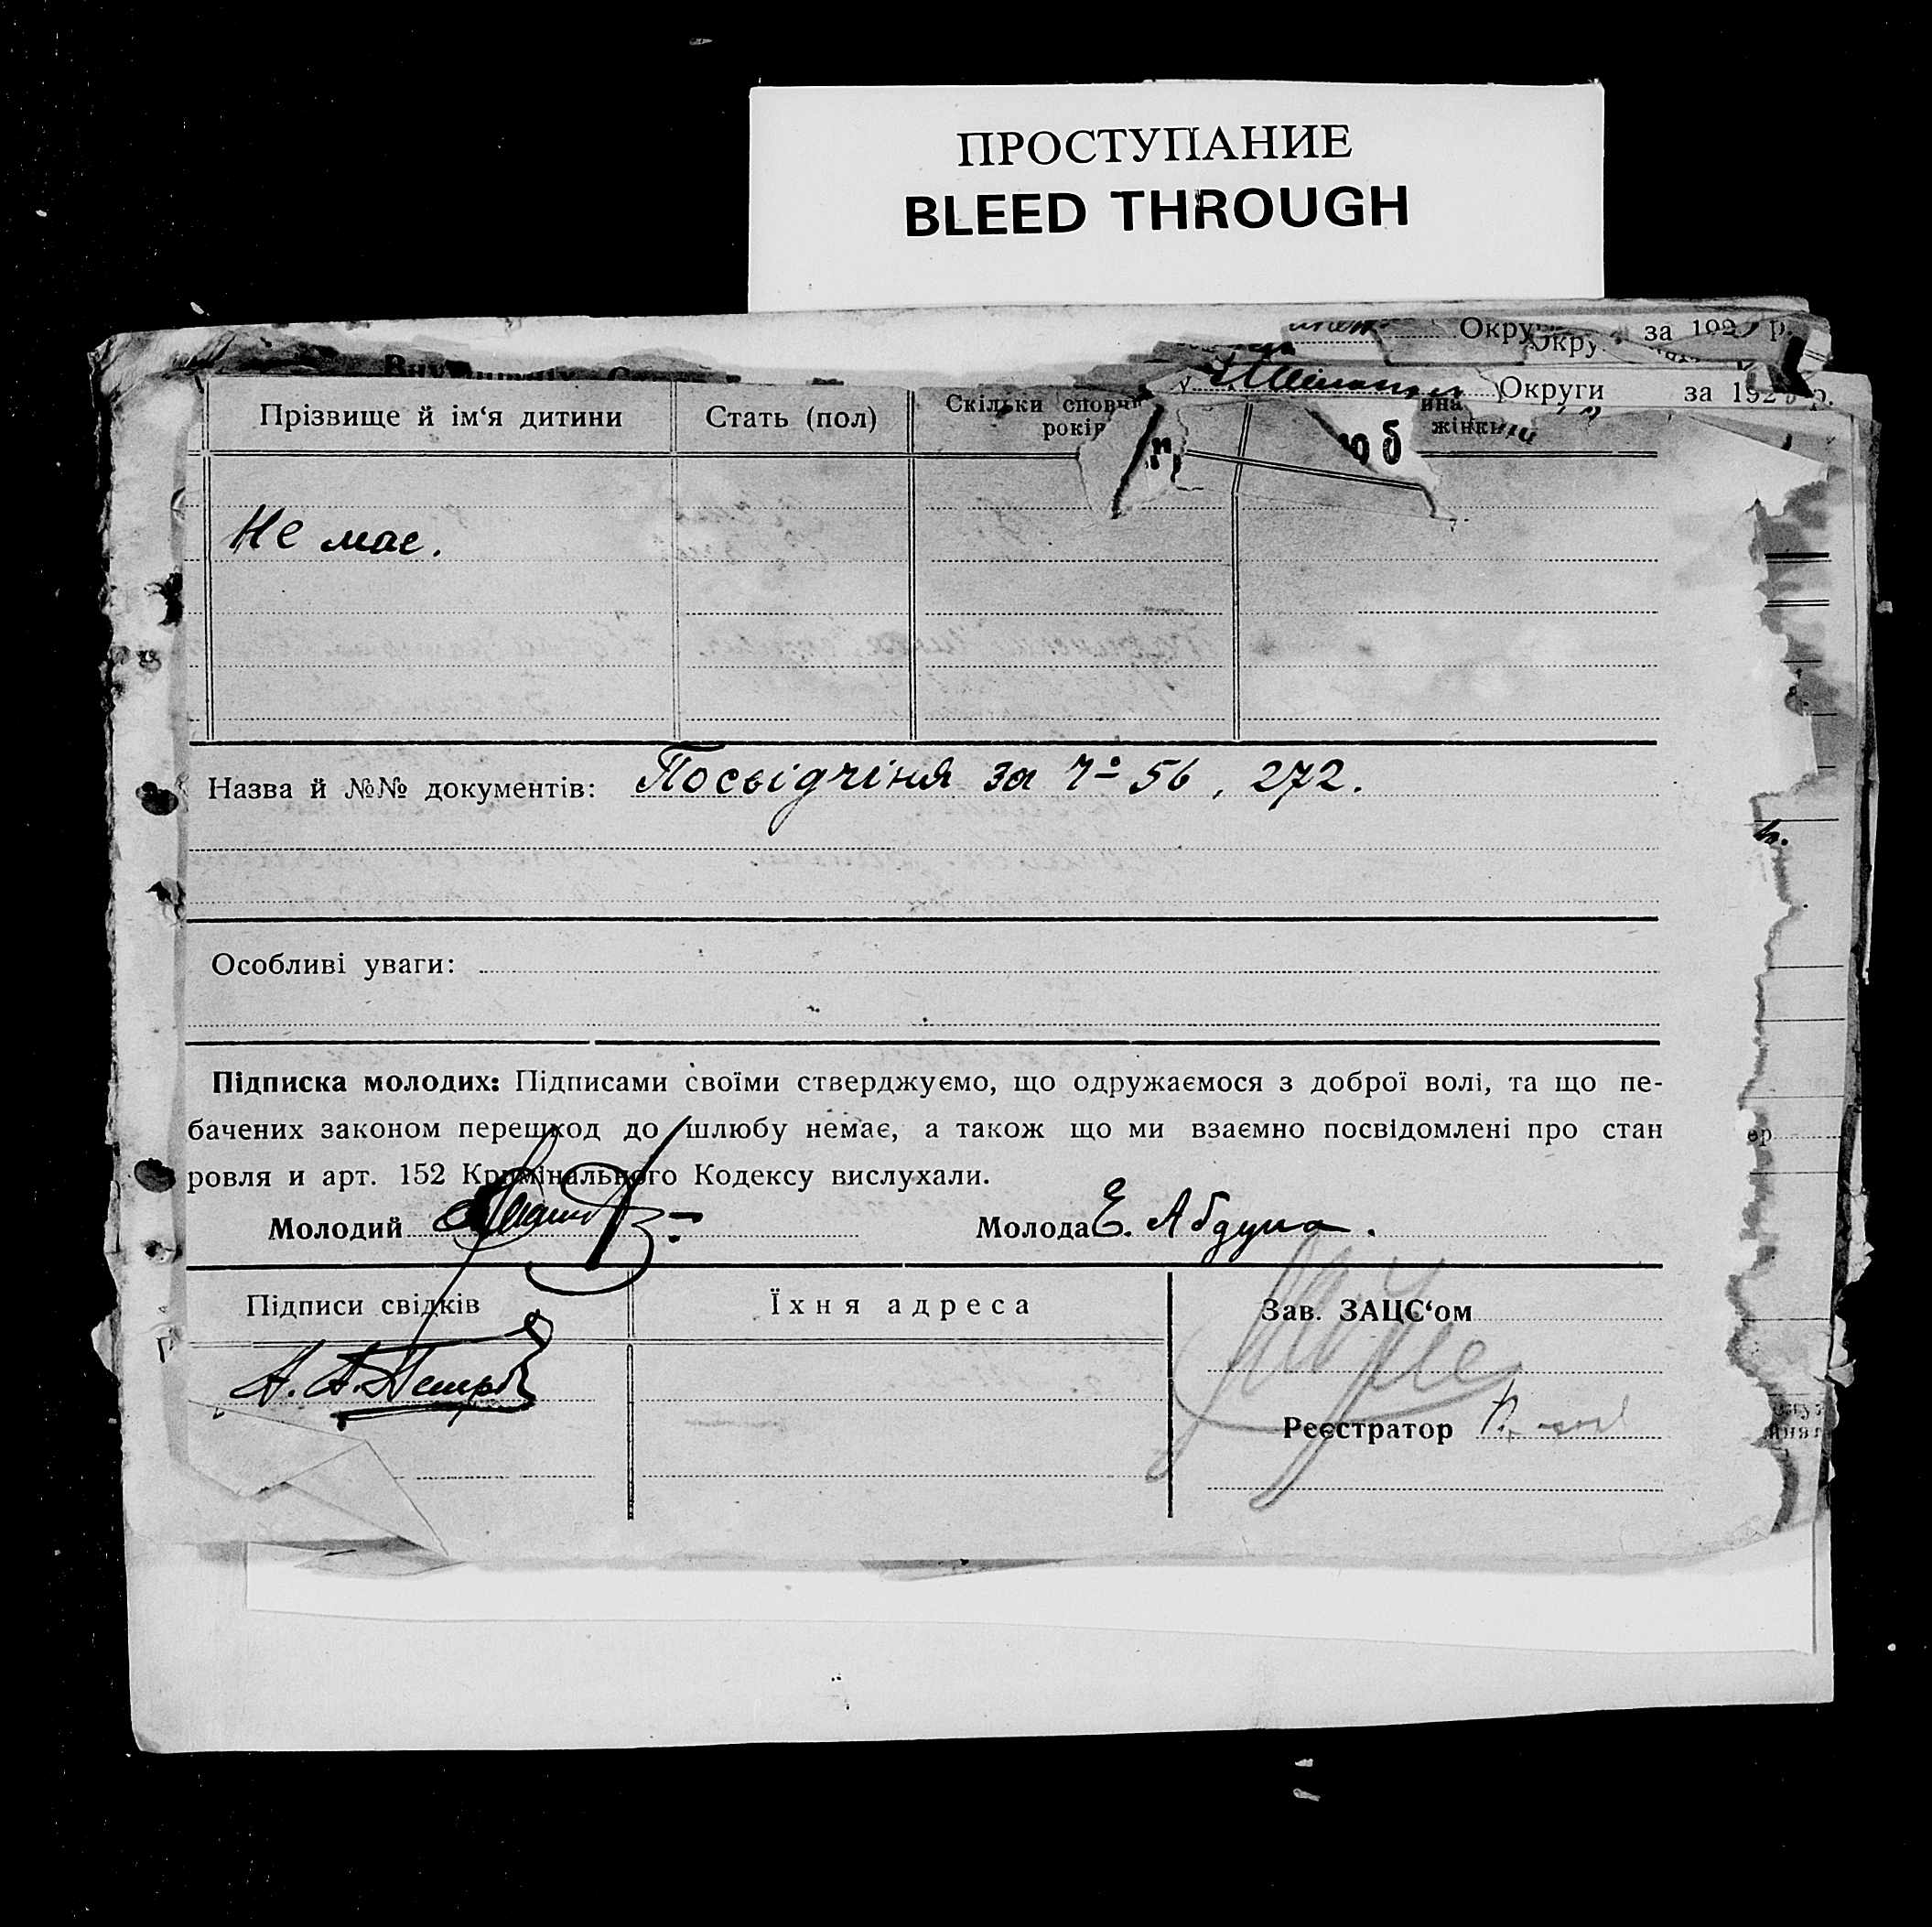 ПРОСТУПАНИЕ
BLEED THROUGH
Округи за 192 р.
Прізвище й ім‘я дитини
Стать (пол)
Скільки
років
жінки
Не має.
Назва й №№ документів: Посвідчіня за № 56, 272.
Особливі уваги:
Підписка молодих: Підписами своїми стверджуємо, що одружаємося з доброї волі, та що пе-
бачених законом перешкод до шлюбу немає, а також що ми взаємно посвідомлені про стан
ровля и арт. 152 Кримінального Кодексу вислухали.
Молодий
Молода Е. Абдула.
Підписи свідків
Їхня адреса
Зав. ЗАЦС‘ом
А. А. Петров
Реєстратор